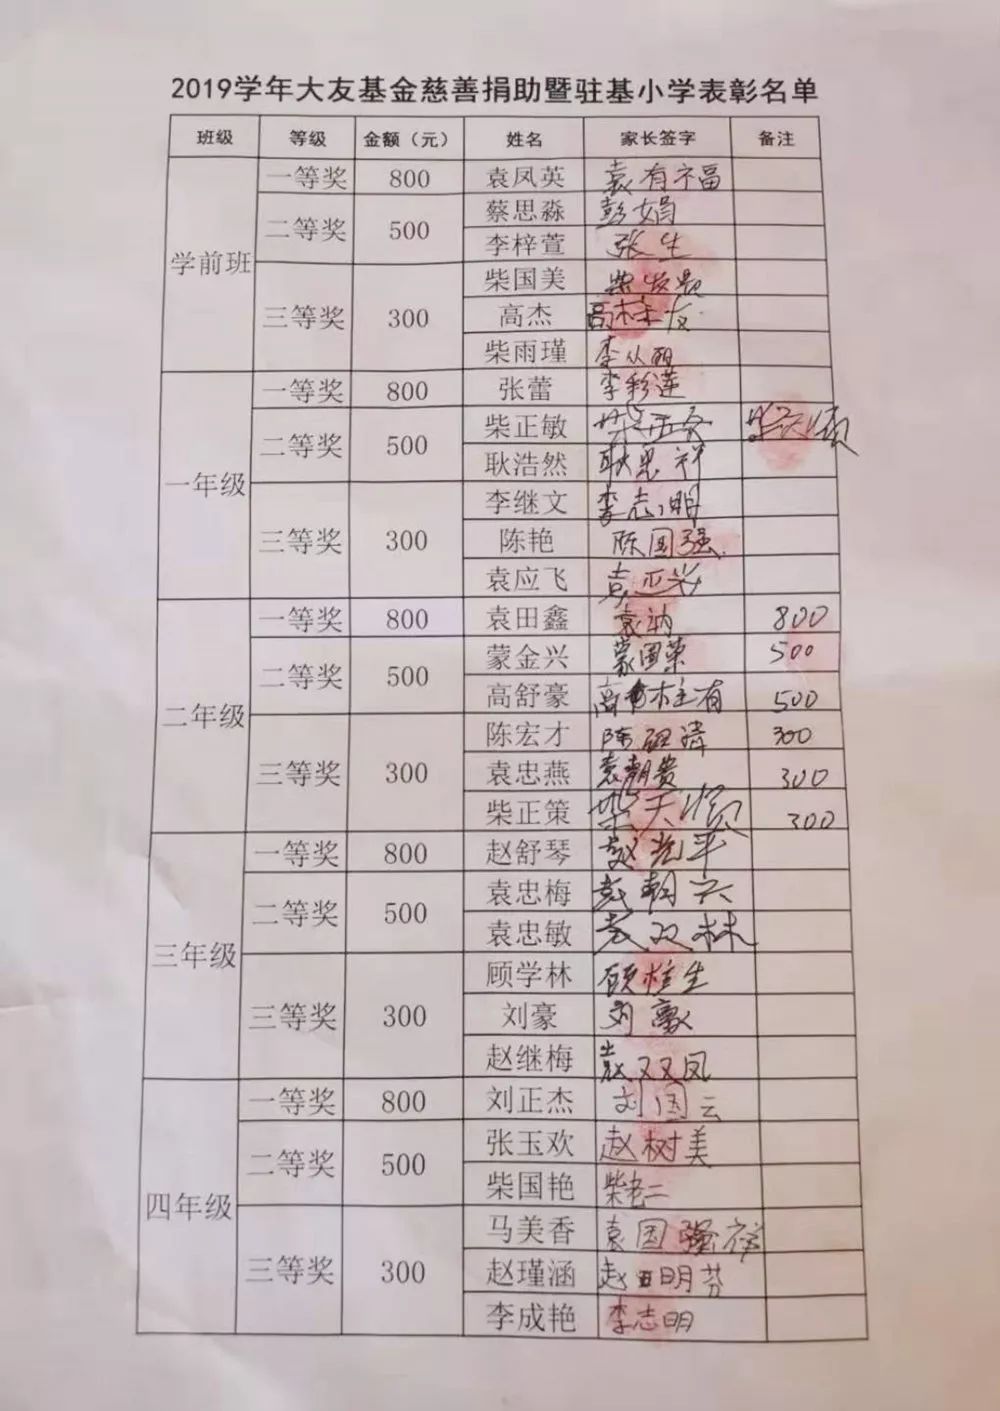 2019学年大友基金慈善捐助暨驻基小学表彰名单
班级 等级 金额（元） 姓名 家长签字 备注
学前班 一等奖 800 袁凤英 袁有福
二等奖 500 蔡思淼 彭娟
李梓萱 张生
三等奖 300 柴国美
高杰 高林友
柴雨瑾 李从丽
一年级 一等奖 800 张蕾 李彩莲
二等奖 500 柴正敏
耿浩然 耿思祥
三等奖 300 李继文 李志明
陈艳 陈国强
袁应飞 袁亚兴
二年级 一等奖 800 袁田鑫 袁讷 800
二等奖 500 蒙金兴 蒙国荣 500
高舒豪 500
三等奖 300 陈宏才 300
袁忠燕 袁朝贵 300
柴正策 柴天顺 300
三年级 一等奖 800 赵舒琴 赵光平
二等奖 500 袁忠梅 袁朝兴
袁忠敏 袁双林
三等奖 300 顾学林 顾栓生
刘豪 刘豪
赵继梅
四年级 一等奖 800 刘正杰 刘国云
二等奖 500 张玉欢 赵树美
柴国艳 柴老二
三等奖 300 马美香 袁国强
赵瑾涵 赵明芬
李成艳 李志明